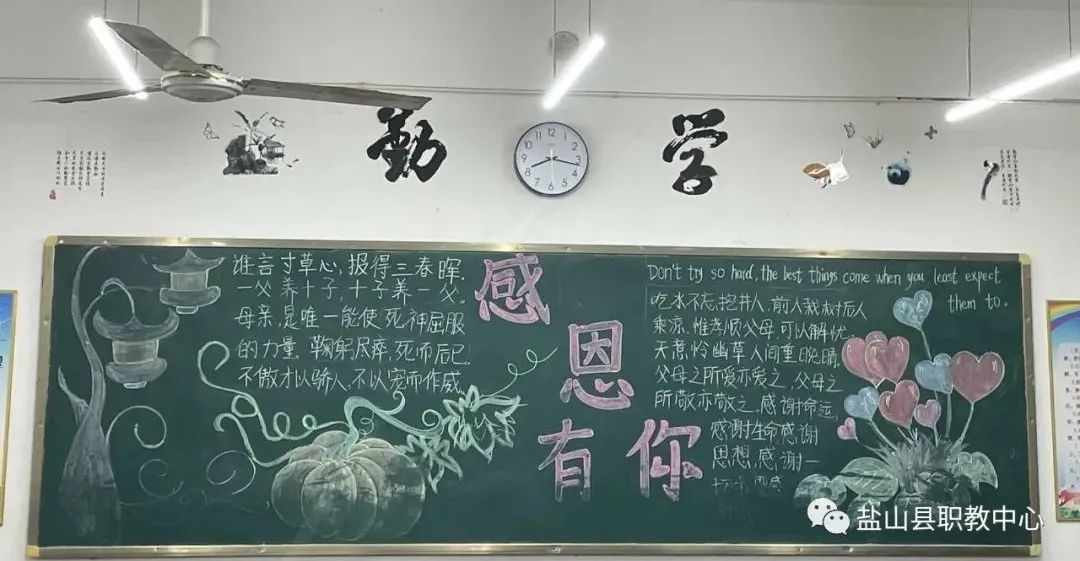 勤
学
谁言寸草心，报得三春晖。
一父养十子，十子养一父。
母亲，是唯一能使死神屈服
的力量。鞠躬尽瘁，死而后已。
不傲才以骄人，不以宠而作威。
感
恩
有
你
Don't try so hard, the best things come when you least expect
them to.
吃水不忘，挖井人，前人栽树后人
乘凉，惟孝顺父母，可以解忧。
天意怜幽草人间重晚晴，
父母之所爱亦爱之，父母之
所敬亦敬之，感谢命运，
感谢生命，感谢
思想，感谢一
盐山县职教中心